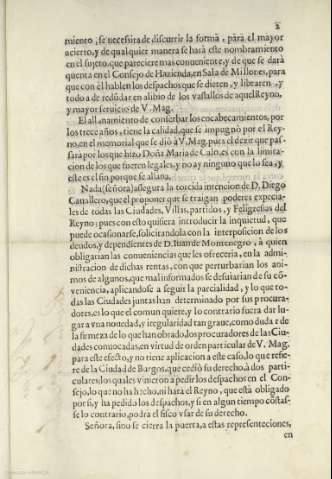 2
miento, se necesita de discurrir la forma, para el mayor
acierto, y de qualquier manera se hará este nombramiento
en el sujeto, que pareciere mas conueniente, y de que se dará
quenta en el Consejo de Hazienda, en Sala de Millones, para
que con él hablen los despachos que se dieren, y libraren, y
todo a de redũdar en alibio de los vasallos de aquel Reyno,
y mayor seruicio de V. Mag.
El allanamiento de conseruar los encabeçamientos, por
los treçe años, tiene la calidad, que se impugnó por el Rey-
no, en el memorial que se dió á V. Mag. pues el dezir que pas-
sará por los que hizo Doña Maria de Calo, es con la limita-
cion de los que fueren legales, y no ay ninguno que lo sea, y
este es el fin porque se allana.
Nada (señora) assegura la torcida intencion de D. Diego
Cauallero, que el proponer que se traigan poderes especia-
les de todas las Ciudades, Villas, partidos, y Feligresias del
Reyno; pues con esto quisiera introducir la inquietud, que
puede ocasionarse, solicitandola con la interposicion de los
deudos, y dependientes de D. Iuan de Montenegro, á quien
obligarian las conueniencias que les ofreceria, en la admi-
nistracion de dichas rentas, con que perturbarian los ani-
mos de algunos, que mal informados se desuiarian de su cõ-
veniencia, aplicandose a seguir la parcialidad, y lo que to-
das las Ciudades juntas han determinado por sus procura-
dores, es lo que el comun quiere, y lo contrario fuera dar lu-
gar a vna nouedad, y irregularidad tan graue, como dudar de
la firmeza de lo que han obrado, los procuradores de las Ciu-
dades conuocadas, en virtud de orden particular de V. Mag.
para este efecto, y no tiene aplicacion a este caso, lo que refie-
re de la Ciudad de Burgos, que cedió su derecho, á dos parti-
culares, los quales vinieron a pedir los despachos en el Con-
sejo, lo que no ha hecho, ni hara el Reyno, que está obligado
por sí, y ha pedido los despachos, y si en algun tiempo cõstas-
se lo contrario, podrá el fisco vsar de su derecho.
Señora, sino se cierra la puerta, a estas representeciones,
en